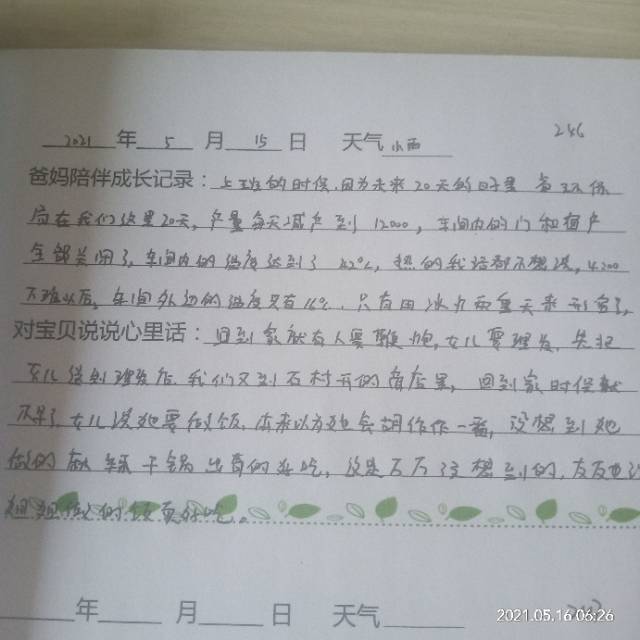 246
2021 年 5 月 15 日 天气 小雨
爸妈陪伴成长记录：上班的时候,因为未来20天的日子里
在我们这里20天,产量每天减产到12000,车间内的门和窗户
全部关闭了,车间内的温度达到了42℃,热的我话都不想说,4:00
下班以后,车间外边的温度只有16℃,只有用冰火两重天来形容了,
对宝贝说说心里话：回到家就有人要,女儿要理发,先把
女儿送到理发店,我们又到石村的商店里,回到家时候就
不早了,女儿说她要做饭,本来以为她会胡作作一番,没想到她
做的干锅出奇的好吃,这是万万没想到的,友友也说
姐姐做的饭真好吃。
年 月 日 天气
2021.05.16 06:26